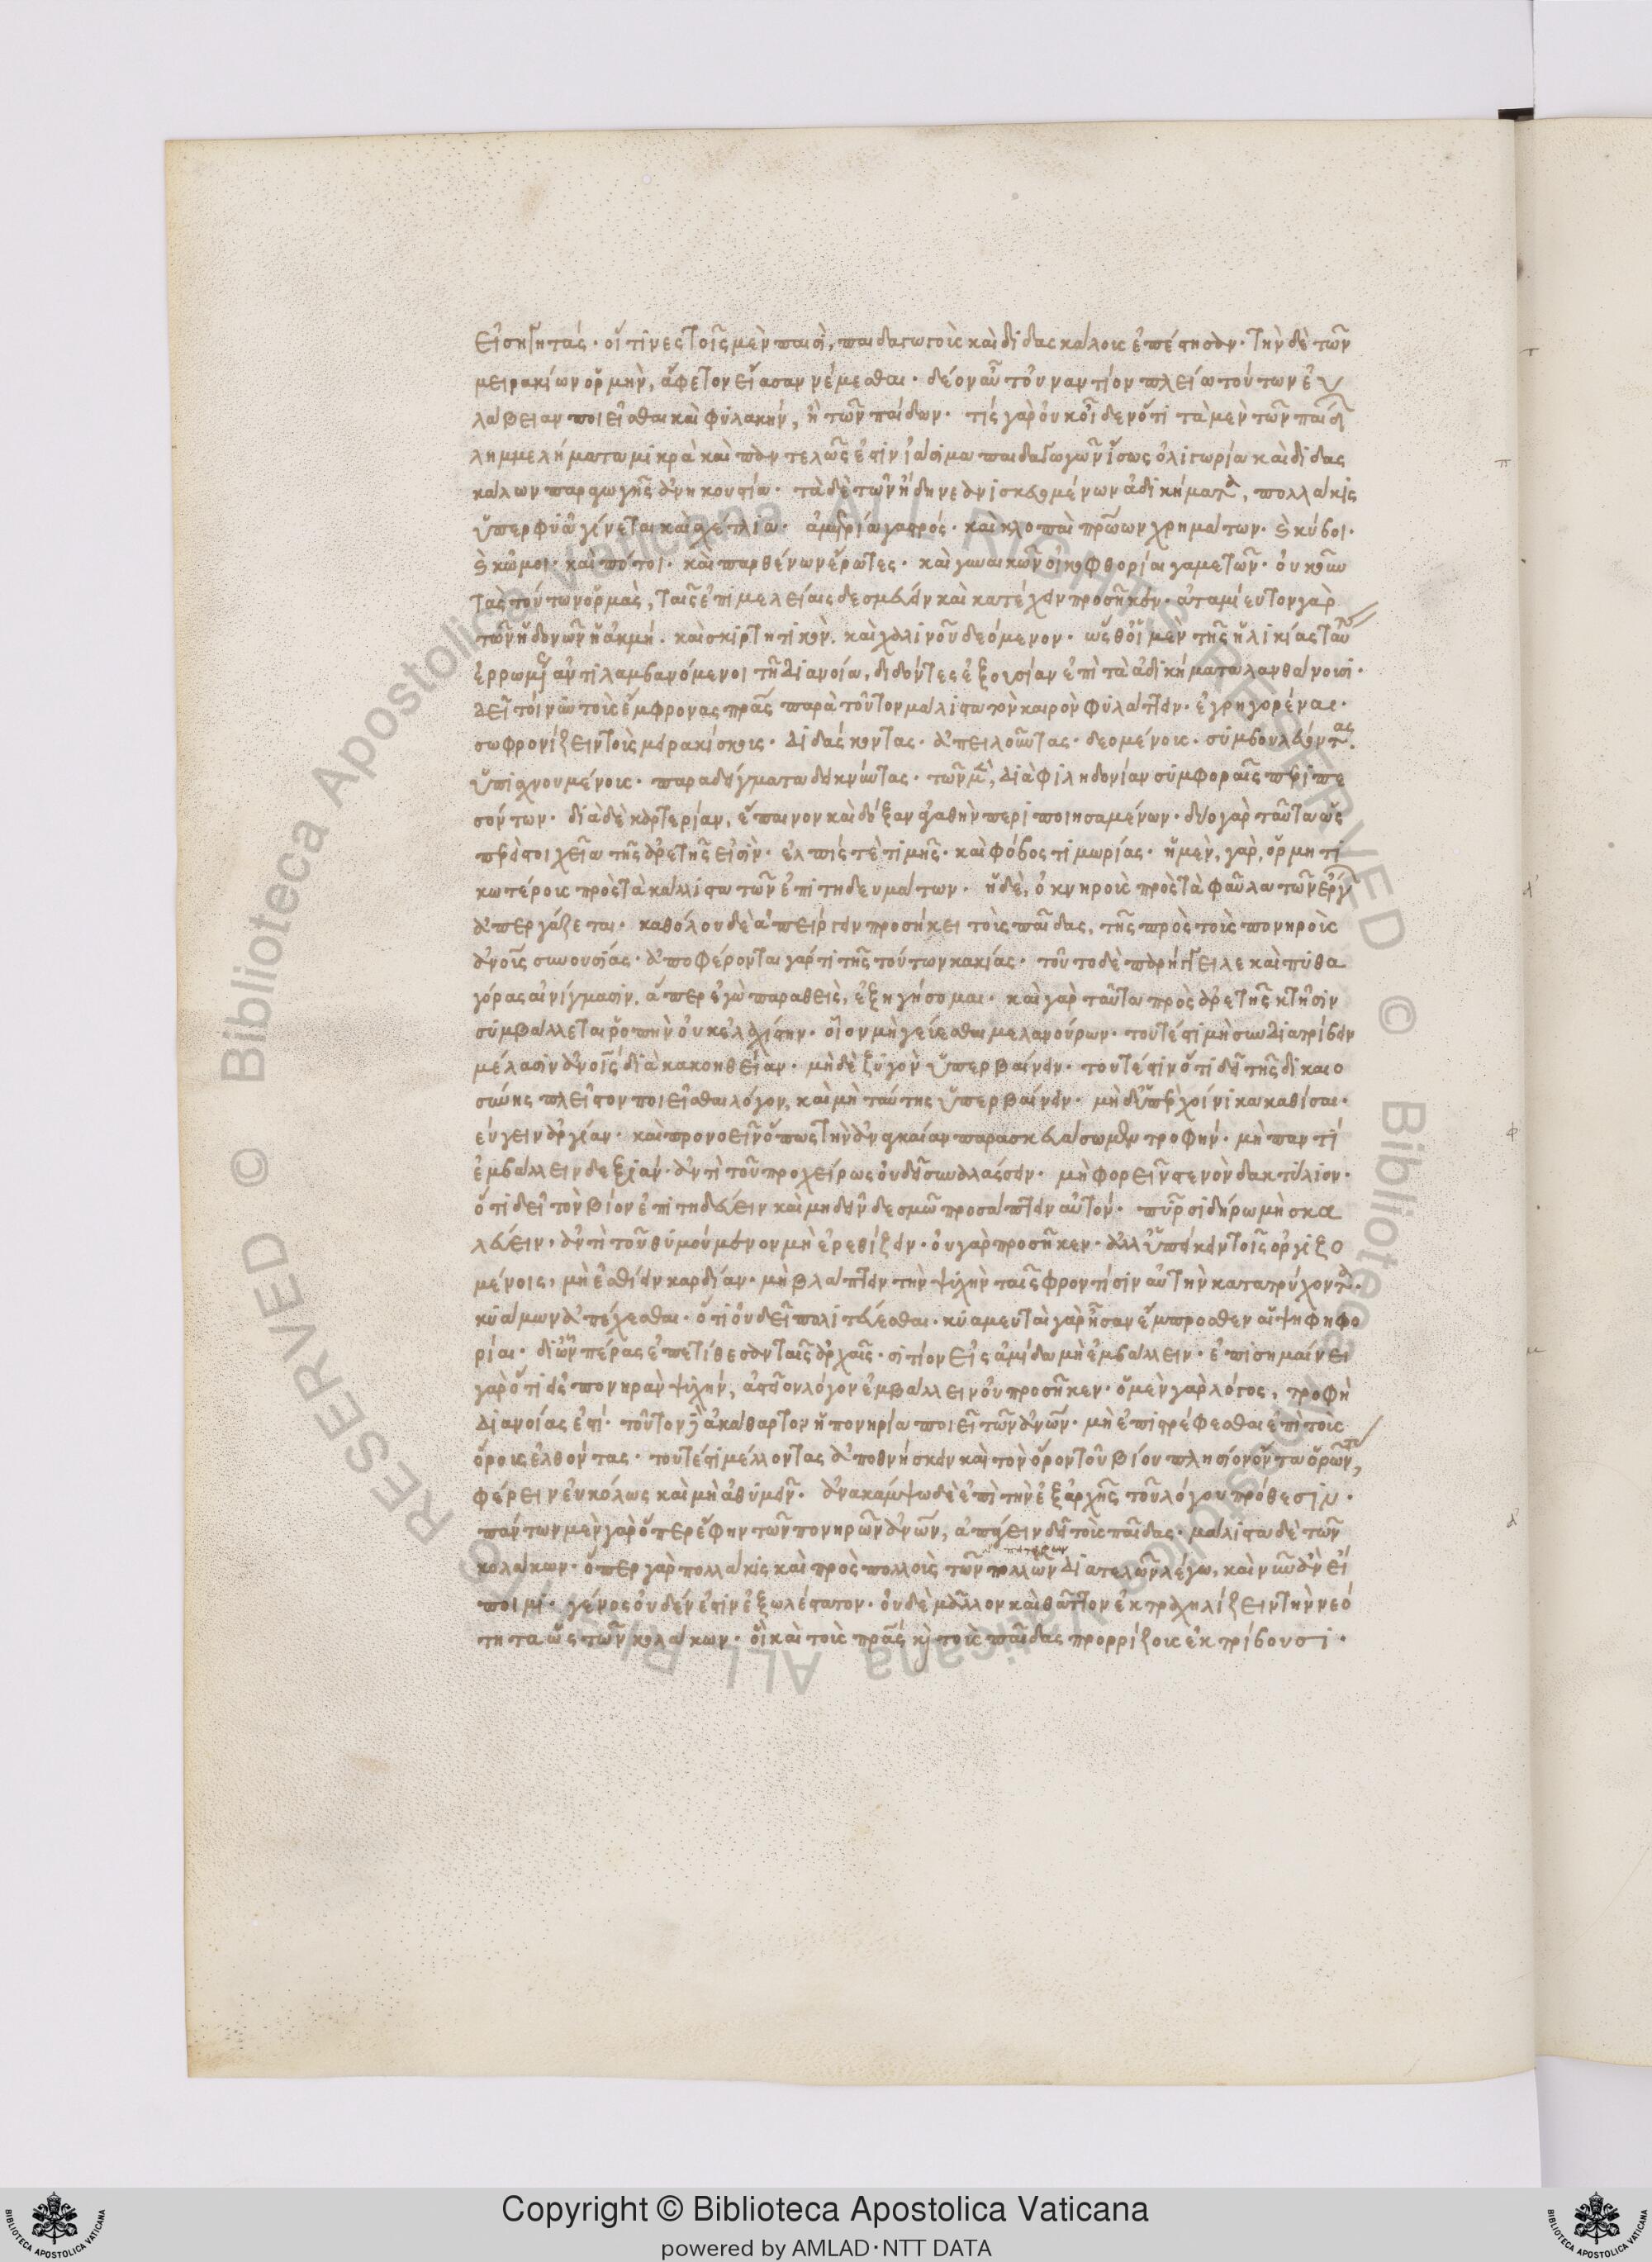 εἰσηγητάς· οἵ τινες τοῖς μὲν παισὶ, παιδαγωγοὺς καὶ διδασκάλους ἐπέστησαν· τὴν δὲ τῶν
μειρακίων ὁρμὴν, ἄφετον εἴασαν νέμεσθαι· δέον αὖ τοὐναντίον πλείω τούτων εὐ
λάβειαν ποιεῖσθαι καὶ φυλακήν, ἢ τῶν παίδων· τίς γὰρ οὐκ οἶδεν ὅτι τὰ μὲν τῶν παίδ
λημμελήματα μικρὰ καὶ παντελῶς ἐστὶν ἰάσιμα παιδαγωγῶν ἴσως ὀλιγωρία καὶ διδασ
κάλων παραγωγῆς ἀνηκουστία· τὰ δὲ τῶν ἤδη νεανισκευομένων ἀδικήματα, πολλάκις
ὑπερφυᾶ γίνεται καὶ σχέτλια· ἀμετρία γαστρός· καὶ κλοπαὶ πρώων χρημάτων· καὶ κύβοι·
καὶ κῶμοι· καὶ πότοι· καὶ παρθένων ἔρωτες· καὶ γυναικῶν οἰκοφθορίαι γαμετῶν· οὐκοῦν
τὰς τούτων ὁρμὰς, ταῖς ἐπιμελείαις δεσμεύειν καὶ κατέχειν προσῆκεν· ἀταμίευτον γὰρ
τῶν ἡδονῶν ἡ ἀκμή· καὶ σκιρτητικὸν. καὶ χαλινοῦ δεόμενον· ὥσθ' οἱ μὲν τῆς ἡλικίας ταύτ
ἐρρωμένως ἀντιλαμβανόμενοι τῇ διανοίᾳ, διδόντες ἐξουσίαν ἐπὶ τὰ ἀδικήματα λανθάνουσι·
δεῖ τοίνυν τοὺς ἔμφρονας πρας παρὰ τοῦτον μάλιστα τὸν καιρὸν φυλάττειν· ἐγρηγορέναι·
σωφρονίζειν τοὺς μειρακίσκους· διδάσκοντας· ἀπειλοῦντας· δεομένους· συμβουλεύοντας·
ὑπισχνουμένους· παραδείγματα δεικνύντας· τῶν μὲν, διὰ φιληδονίαν συμφοραῖς περιπε
σόντων· διὰ δὲ καρτερίαν, ἔπαινον καὶ δόξαν ἀγαθὴν περιποιησαμένων· δύο γὰρ ταῦτα ὡς
περ στοιχεῖα τῆς ἀρετῆς εἰσὶν· ἐλπίς τε τιμῆς· καὶ φόβος τιμωρίας· ἡ μὲν, γὰρ, ὁρμητι
κωτέρους πρὸς τὰ κάλλιστα τῶν ἐπιτηδευμάτων· ἡ δὲ, ὀκνηροὺς πρὸς τὰ φαῦλα τῶν ἔργ
ἀπεργάζεται· καθόλου δὲ ἀπείργειν προσήκει τοὺς παῖδας, τῆς πρὸς τοὺς πονηροὺς
ἀνους συνουσίας· ἀποφέρονται γάρ τι τῆς τούτων κακίας· τοῦτο δὲ παρήγγειλε καὶ πυθα
γόρας αἰνίγμασιν, ἅπερ ἐγὼ παραθεὶς, ἐξηγήσομαι· καὶ γὰρ ταῦτα πρὸς ἀρετῆς κτῆσιν
συμβάλλεται ῥοπὴν οὐκ ἐλαχίστην· οἷον μὴ γεύεσθαι μελανούρων· τουτέστι μὴ συνδιατρίβειν
μέλασιν ἀνοις διὰ κακοηθείαν· μὴ δὲ ζυγὸν ὑπερβαίνειν· τουτέστιν ὅτι δεῖ τῆς δικαιο
σύνης πλεῖστον ποιεῖσθαι λόγον, καὶ μὴ ταύτης ὑπερβαίνειν· μὴ δ' ὑπὲρ χοίνικα καθίσαι·
εύγειν ἀργίαν· καὶ προνοεῖν ὅπως τὴν ἀναγκαίαν παρασκευάσωμεν τροφήν· μὴ παντί
ἐμβάλλειν δεξιάν· ἀντὶ τοῦ προχείρως οὐ δεῖ συναλλάσσειν· μὴ φορεῖν στενὸν δακτύλιον·
ὅτι δεῖ τὸν βίον ἐπιτηδεύειν καὶ μὴ δεῖν δεσμῷ προσάπτειν αὐτόν· πῦρ σιδήρῳ μὴ σκα
λεύειν· ἀντὶ τοῦ θυμούμενον μὴ ἐρεθίζειν· οὐ γὰρ προσῆκεν· ἀλλ' ὑπείκειν τοῖς ὀργιζο
μένοις, μὴ ἐσθίειν καρδίαν· μὴ βλάπτειν τὴν ψυχὴν ταῖς φροντίσιν αὐτὴν κατατρύχοντα·
κυάμων ἀπέχεσθαι· ὅτι οὐ δεῖ πολιτεύεσθαι· κυαμευταὶ γὰρ ἦσαν ἔμπροσθεν αἱ ψηφηφο
ρίαι· δι' ὧν πέρας ἐπετίθεσαν ταῖς ἀρχαῖς· σιτίον εἰς ἀμίδα μὴ ἐμβάλλειν· ἐπισημαίνει
γὰρ ὅτι εἰς πονηρὰν ψυχήν, ἀστεῖον λόγον ἐμβάλλειν οὐ προσῆκεν· ὁ μὲν γὰρ λόγος, τροφὴ
διανοίας ἐστί· τοῦτον δὲ ἀκάθαρτον ἡ πονηρία ποιεῖ τῶν ἀνων· μὴ ἐπιστρέφεσθαι ἐπὶ τοὺς
ὅρους ἐλθόντας· τουτέστι μέλλοντας ἀποθνήσκειν καὶ τὸν ὅρον τοῦ βίου πλησίον ὄντα ὁρῶντ,
φέρειν εὐκόλως καὶ μὴ ἀθυμεῖν· ἀνακάμψω δὲ ἐπὶ τὴν ἐξ ἀρχῆς τοῦ λόγου πρόθεσιν·
πάντων μὲν γὰρ ὅπερ ἔφην τῶν πονηρῶν ἀνων, ἀπάγειν δεῖ τοὺς παῖδας· μάλιστα δὲ τῶν
κολάκων· ὅπερ γὰρ πολλάκις καὶ πρὸς πολλοὺς τῶν πολλῶν διατελῶ λέγω, καὶ νῦν ἂν εἴ
ποιμι· γένος οὐδέν ἐστιν ἐξωλέστατον· οὐδὲ μᾶλλον καὶ θᾶττον ἐκτραχηλίζειν τὴν νεό
τητα ὡς τῶν κολάκων· οἳ καὶ τοὺς πρας καὶ τοὺς παῖδας προρρίζους ἐκτρίβουσι·
Copyright © Biblioteca Apostolica Vaticana
powered by AMLAD·NTT DATA